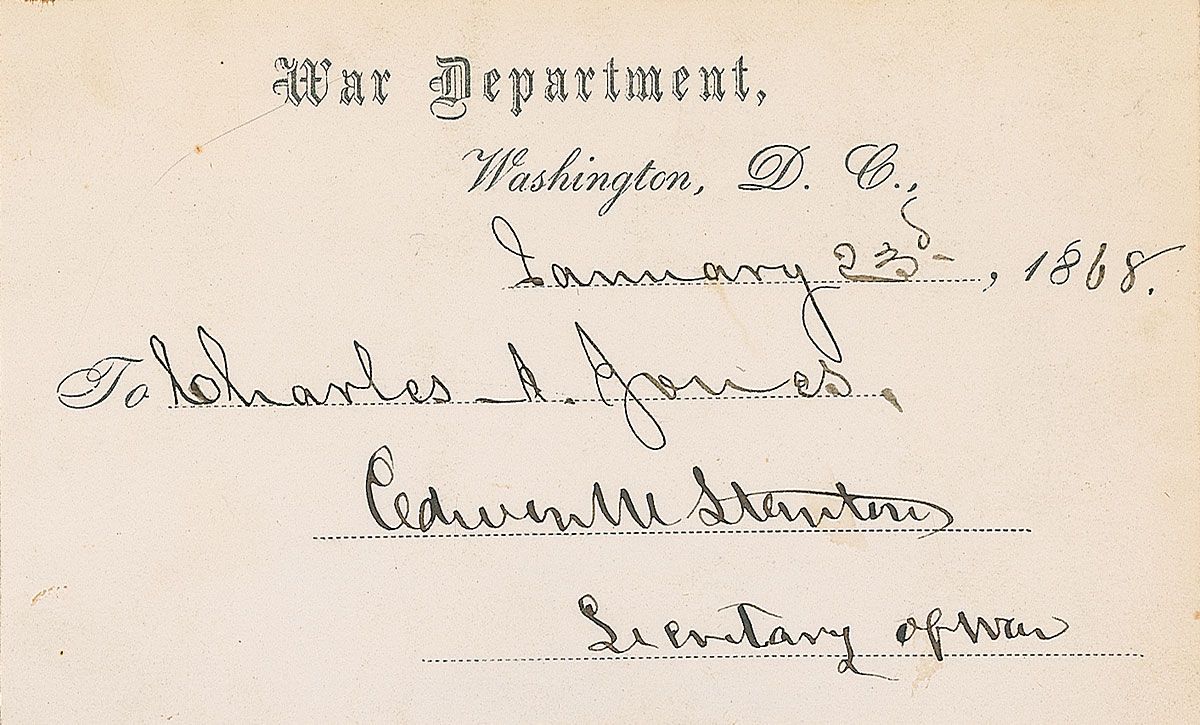 War Department,
Washington, D. C.,
January 23d, 1868.
To Charles A. Jones.
Edwin M Stanton
Secretary of War